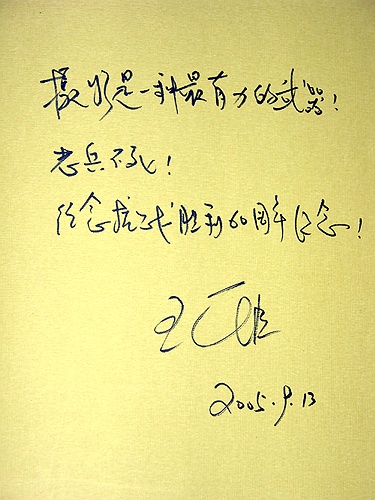 摄影是一种最有力的武器!
老兵不死!
纪念抗战胜利60周年纪念!
2005.9.13